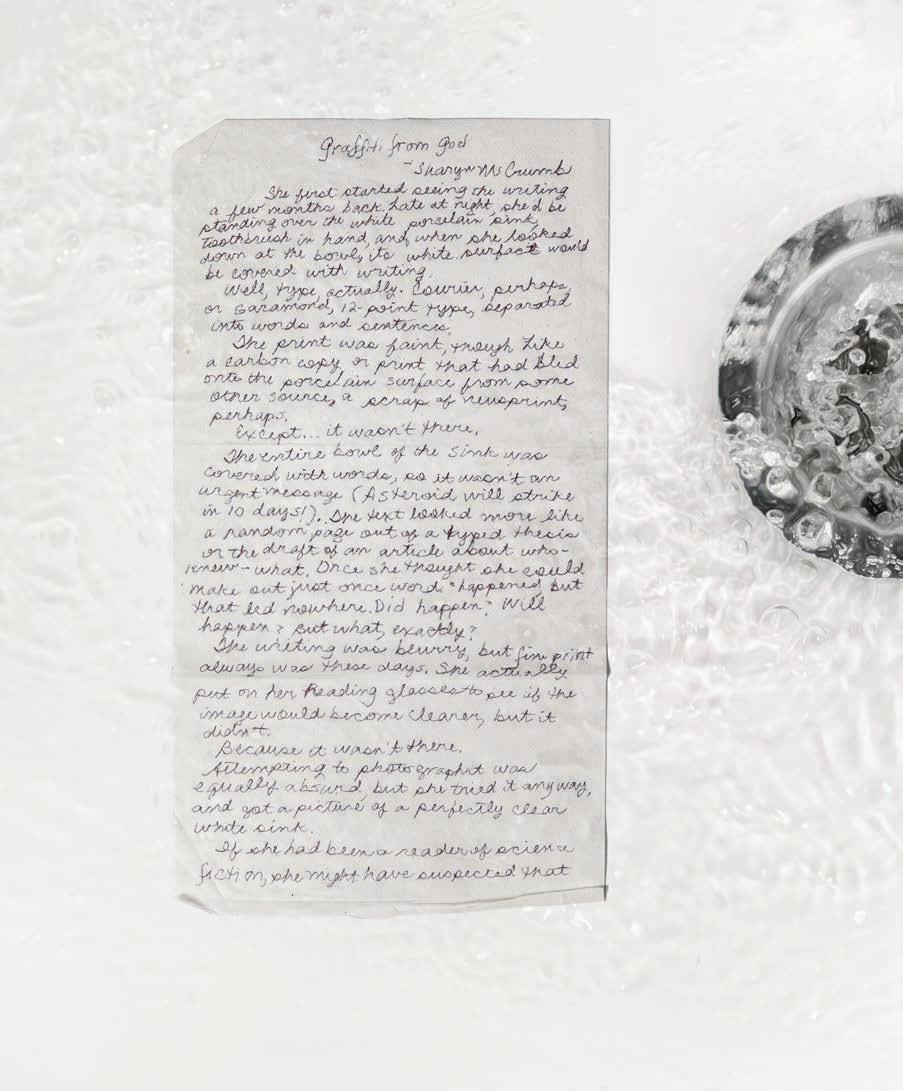 Graffiti from God
~Sharyn McCrumb
She first started seeing the writing
a few months back. Late at night, she'd be
standing over the white porcelain sink,
toothbrush in hand, and, when she looked
down at the bowl, its white surface would
be covered with writing.
Well, type, actually. Courier, perhaps,
or Garamond, 12-point type, separated
into words and sentences.
The print was faint, though like
a carbon copy, or print that had bled
onto the porcelain surface from some
other source, a scrap of newsprint,
perhaps.
Except... it wasn't there.
The entire bowl of the sink was
covered with words, so it wasn't an
urgent message (Asteroid will strike
in 10 days!). The text looked more like
a random page out of a typed thesis
or the draft of an article about who-
knew-what. Once she thought she could
make out just once word: "happened, but
that led nowhere. Did happen? Will
happen? But what, exactly?
The writing was blurry, but fine print
always was these days. She actually
put on her reading glasses to see if the
image would become clearer, but it
didn't.
Because it wasn't there.
Attempting to photograph it was
equally absurd, but she tried it anyway,
and got a picture of a perfectly clear
white sink.
If she had been a reader of science
fiction, she might have suspected that